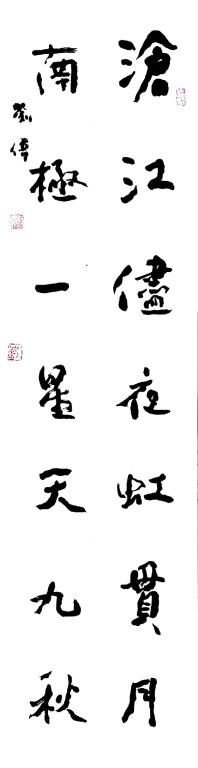 滄江儘夜虹貫月
南極一星天九秋
劉傅